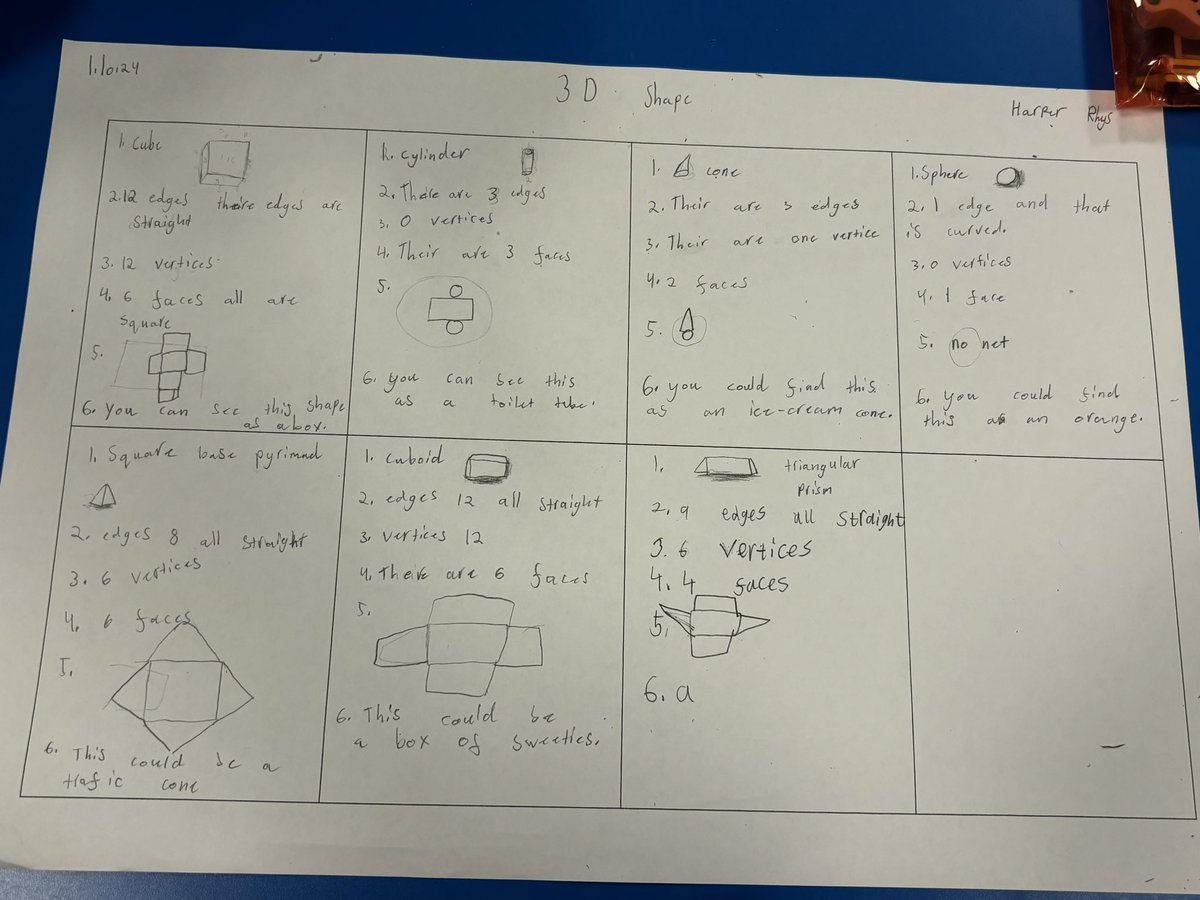 1.10.24
3D Shape
Harper Rhys
1. Cube
2. 12 edges there edges are
straight
3. 12 vertices
4. 6 faces all are
square
5.
6. You can see this shape
as a box.
1. cylinder
2. There are 3 edges
3. 0 vertices
4. Their are 3 faces
5.
6. you can see this
as a toilet tube.
1. cone
2. Their are edges
3. Their are one vertice
4. 2 faces
5.
6. you could find this
as an ice-cream cone.
1. Sphere
2. 1 edge and that
is curved.
3. 0 vertices
4. 1 face
5. no net
6. you could find
this as an orange.
1. Square base pyrimad
2. edges 8 all straight
3. 6 vertices
4. 6 faces
5.
6. This could be a
trafic cone
1. cuboid
2. edges 12 all straight
3. vertices 12
4. There are 6 faces
5.
6. This could be
a box of sweeties.
1. triangular
prism
2. 9 edges all straight
3. 6 vertices
4. 4 faces
5.
6. a